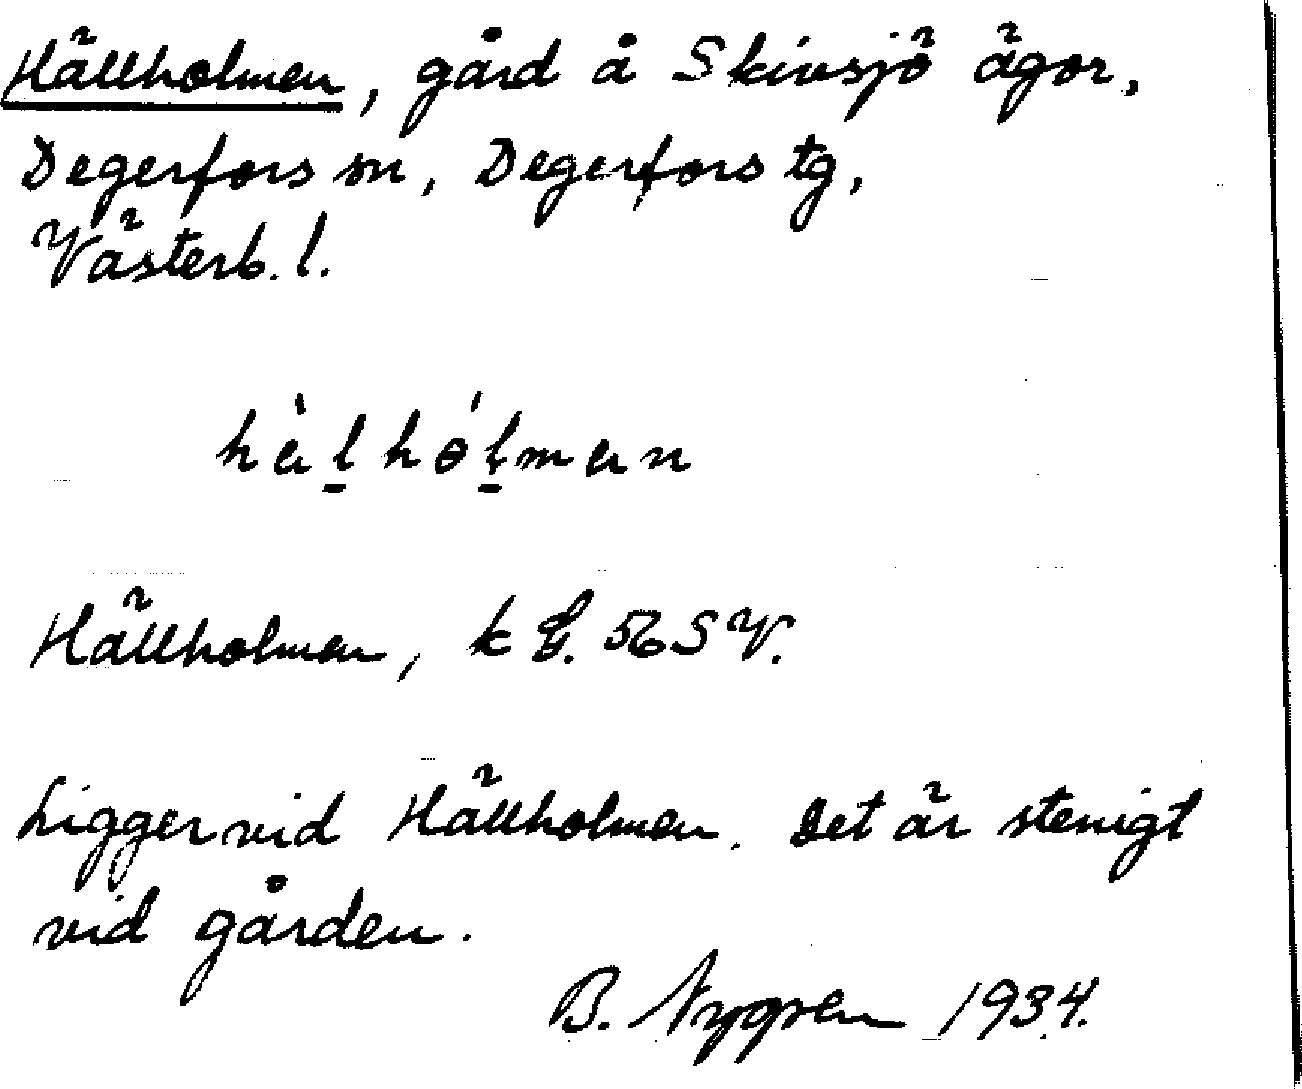 Hällholmen, gård å Skivsjö ägor,
Degerfors sn, Degerfors tg,
Västerb. l.
Hällholmen, k 56 SV.
Ligger vid Hällholmen. Det är stenigt
vid gården.
B. Nygren 1934.